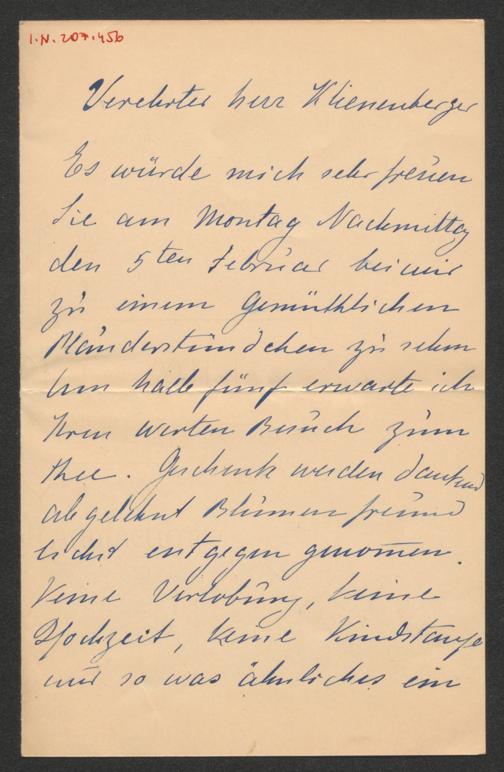 I.N. 207.456
Verehrter herr Klienenberger
Es würde mich sehr freuen
Sie am Montag Nachmittag
den 5ten Februar bei mir
zu einem Gemüthlichen
Plauderstündchen zu sehen
Um halb fünf erwarte ich
Ihren werten Besuch zum
Thee. Geschenk werden dankend
abgelehnt Blumen freund
lichst entgegen genomen.
Keine Verlobung, keine
Hochzeit, keine Kindstaufe
nur so was ähnliches ein